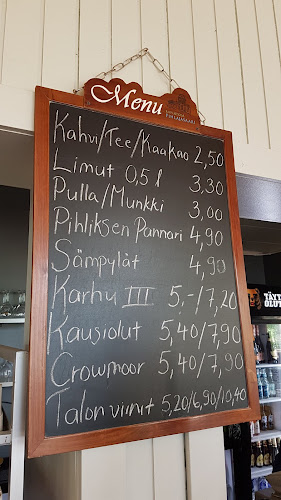 Menu
PIHLAJASAARI
Kahvi/Tee/Kaakao 2,50
Limut 0,5 l 3,30
Pulla/Munkki 3,00
Pihliksen Pannari 4,90
Sämpylät 4,90
Karhu III 5,-/7,20
Kausiolut 5,40/7,90
Crowmoor 5,40/7,90
Talon viinit 5,20/6,90/10,40
TÄYT
OLUT